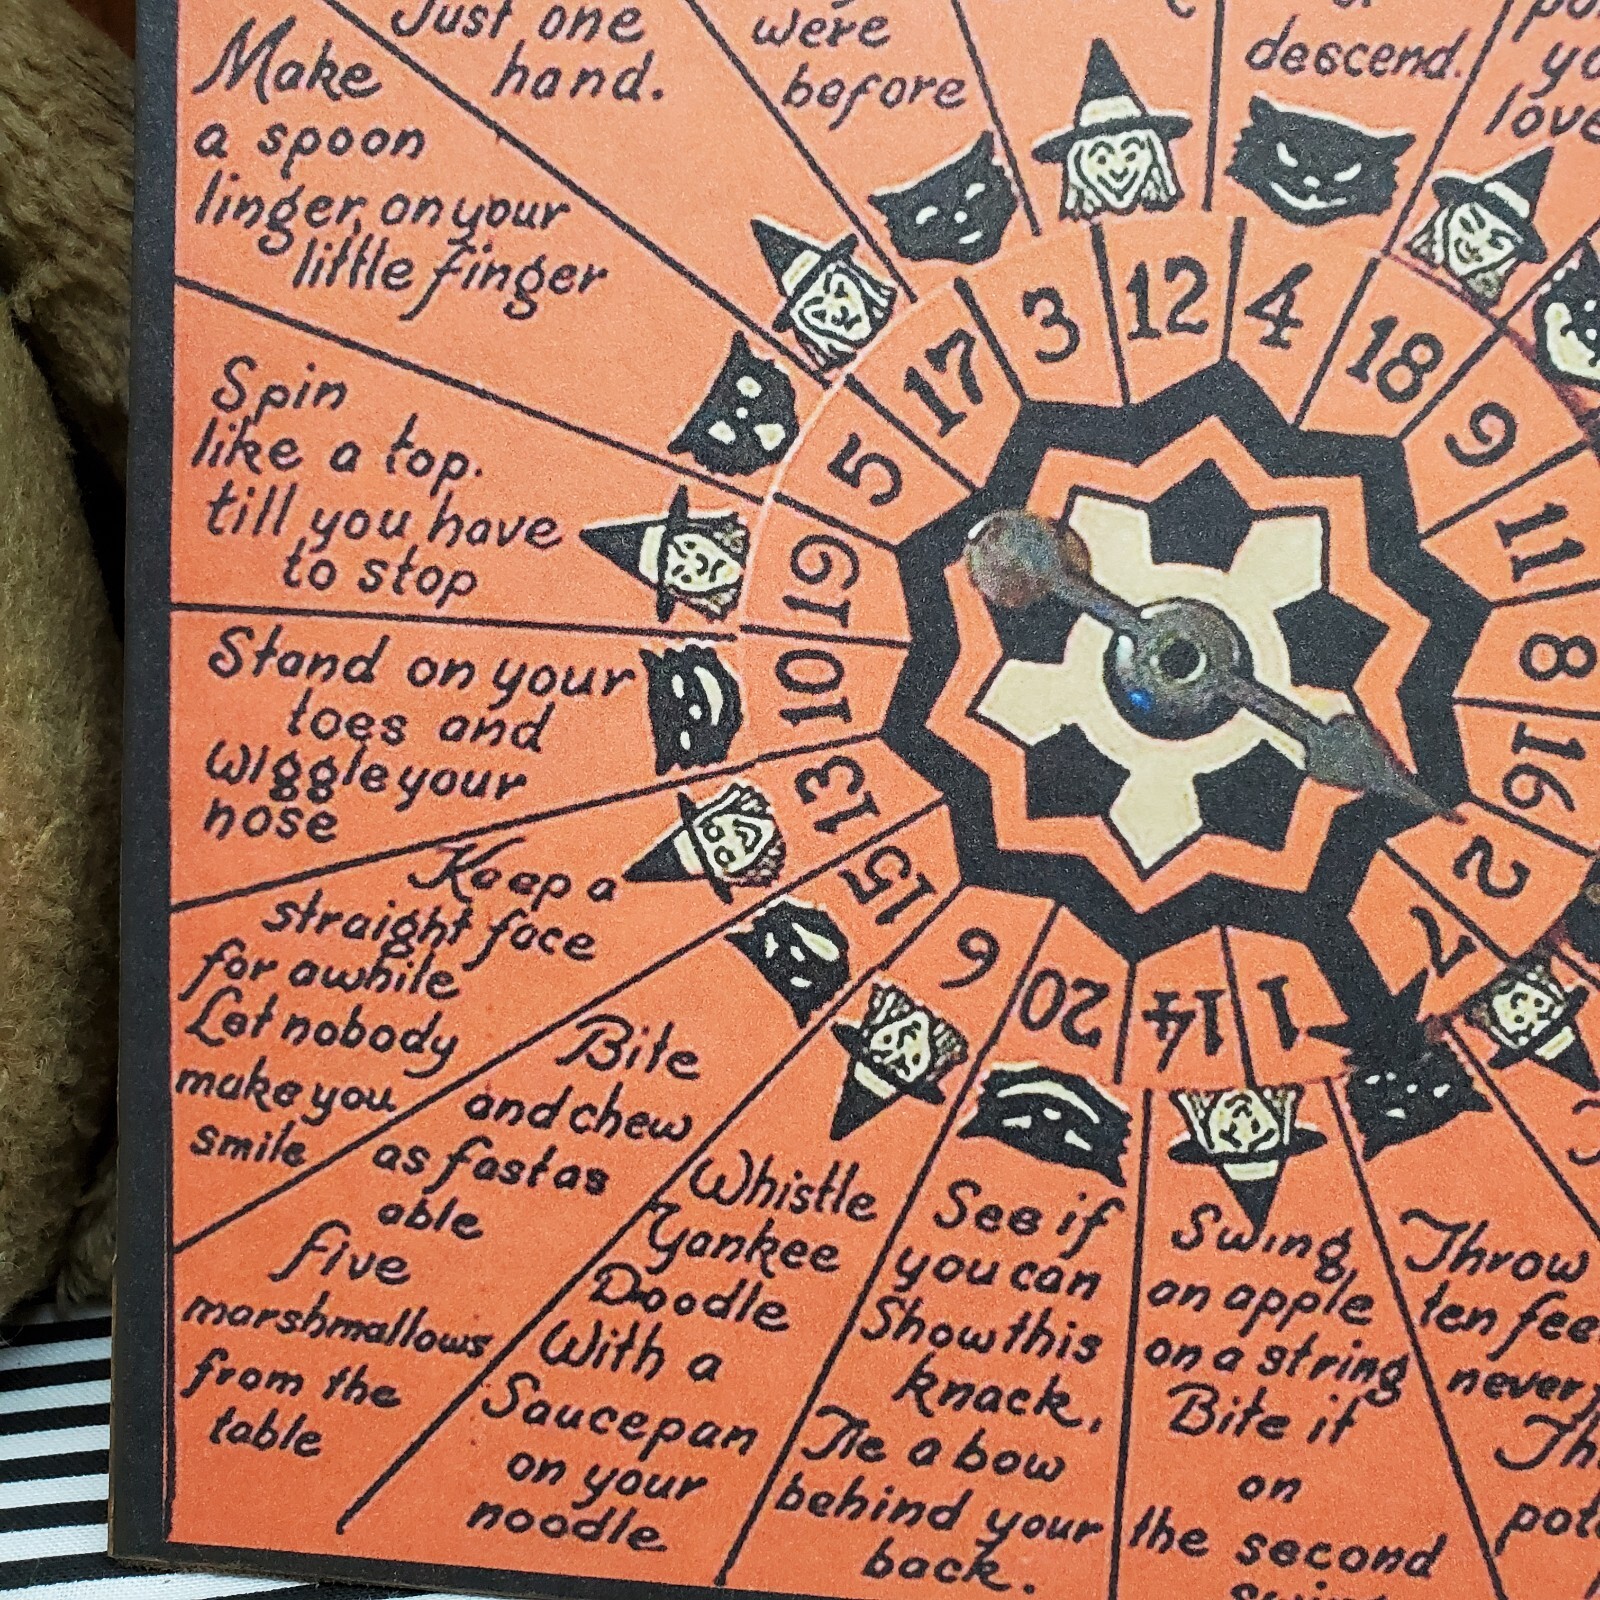 Just one
hand.
were
before
descend.
love
Make
a spoon
linger, on your
little finger
Spin
like a top.
till you have
to stop
Stand on your
toes and
wiggle your
nose
Keep a
straight face
for awhile
Let nobody
make you
smile
Bite
and chew
as fast as
able
five
marshmallows
from the
table
Whistle
Yankee
Doodle
With a
Saucepan
on your
noodle
See if
you can
Show this
knack,
Tie a bow
behind your
back.
Swing
an apple
on a string
Bite it
on
the second
swing
Throw
ten fee
never
3
12
4
18
9
11
8
16
2
7
1
14
20
6
15
13
10
19
5
17